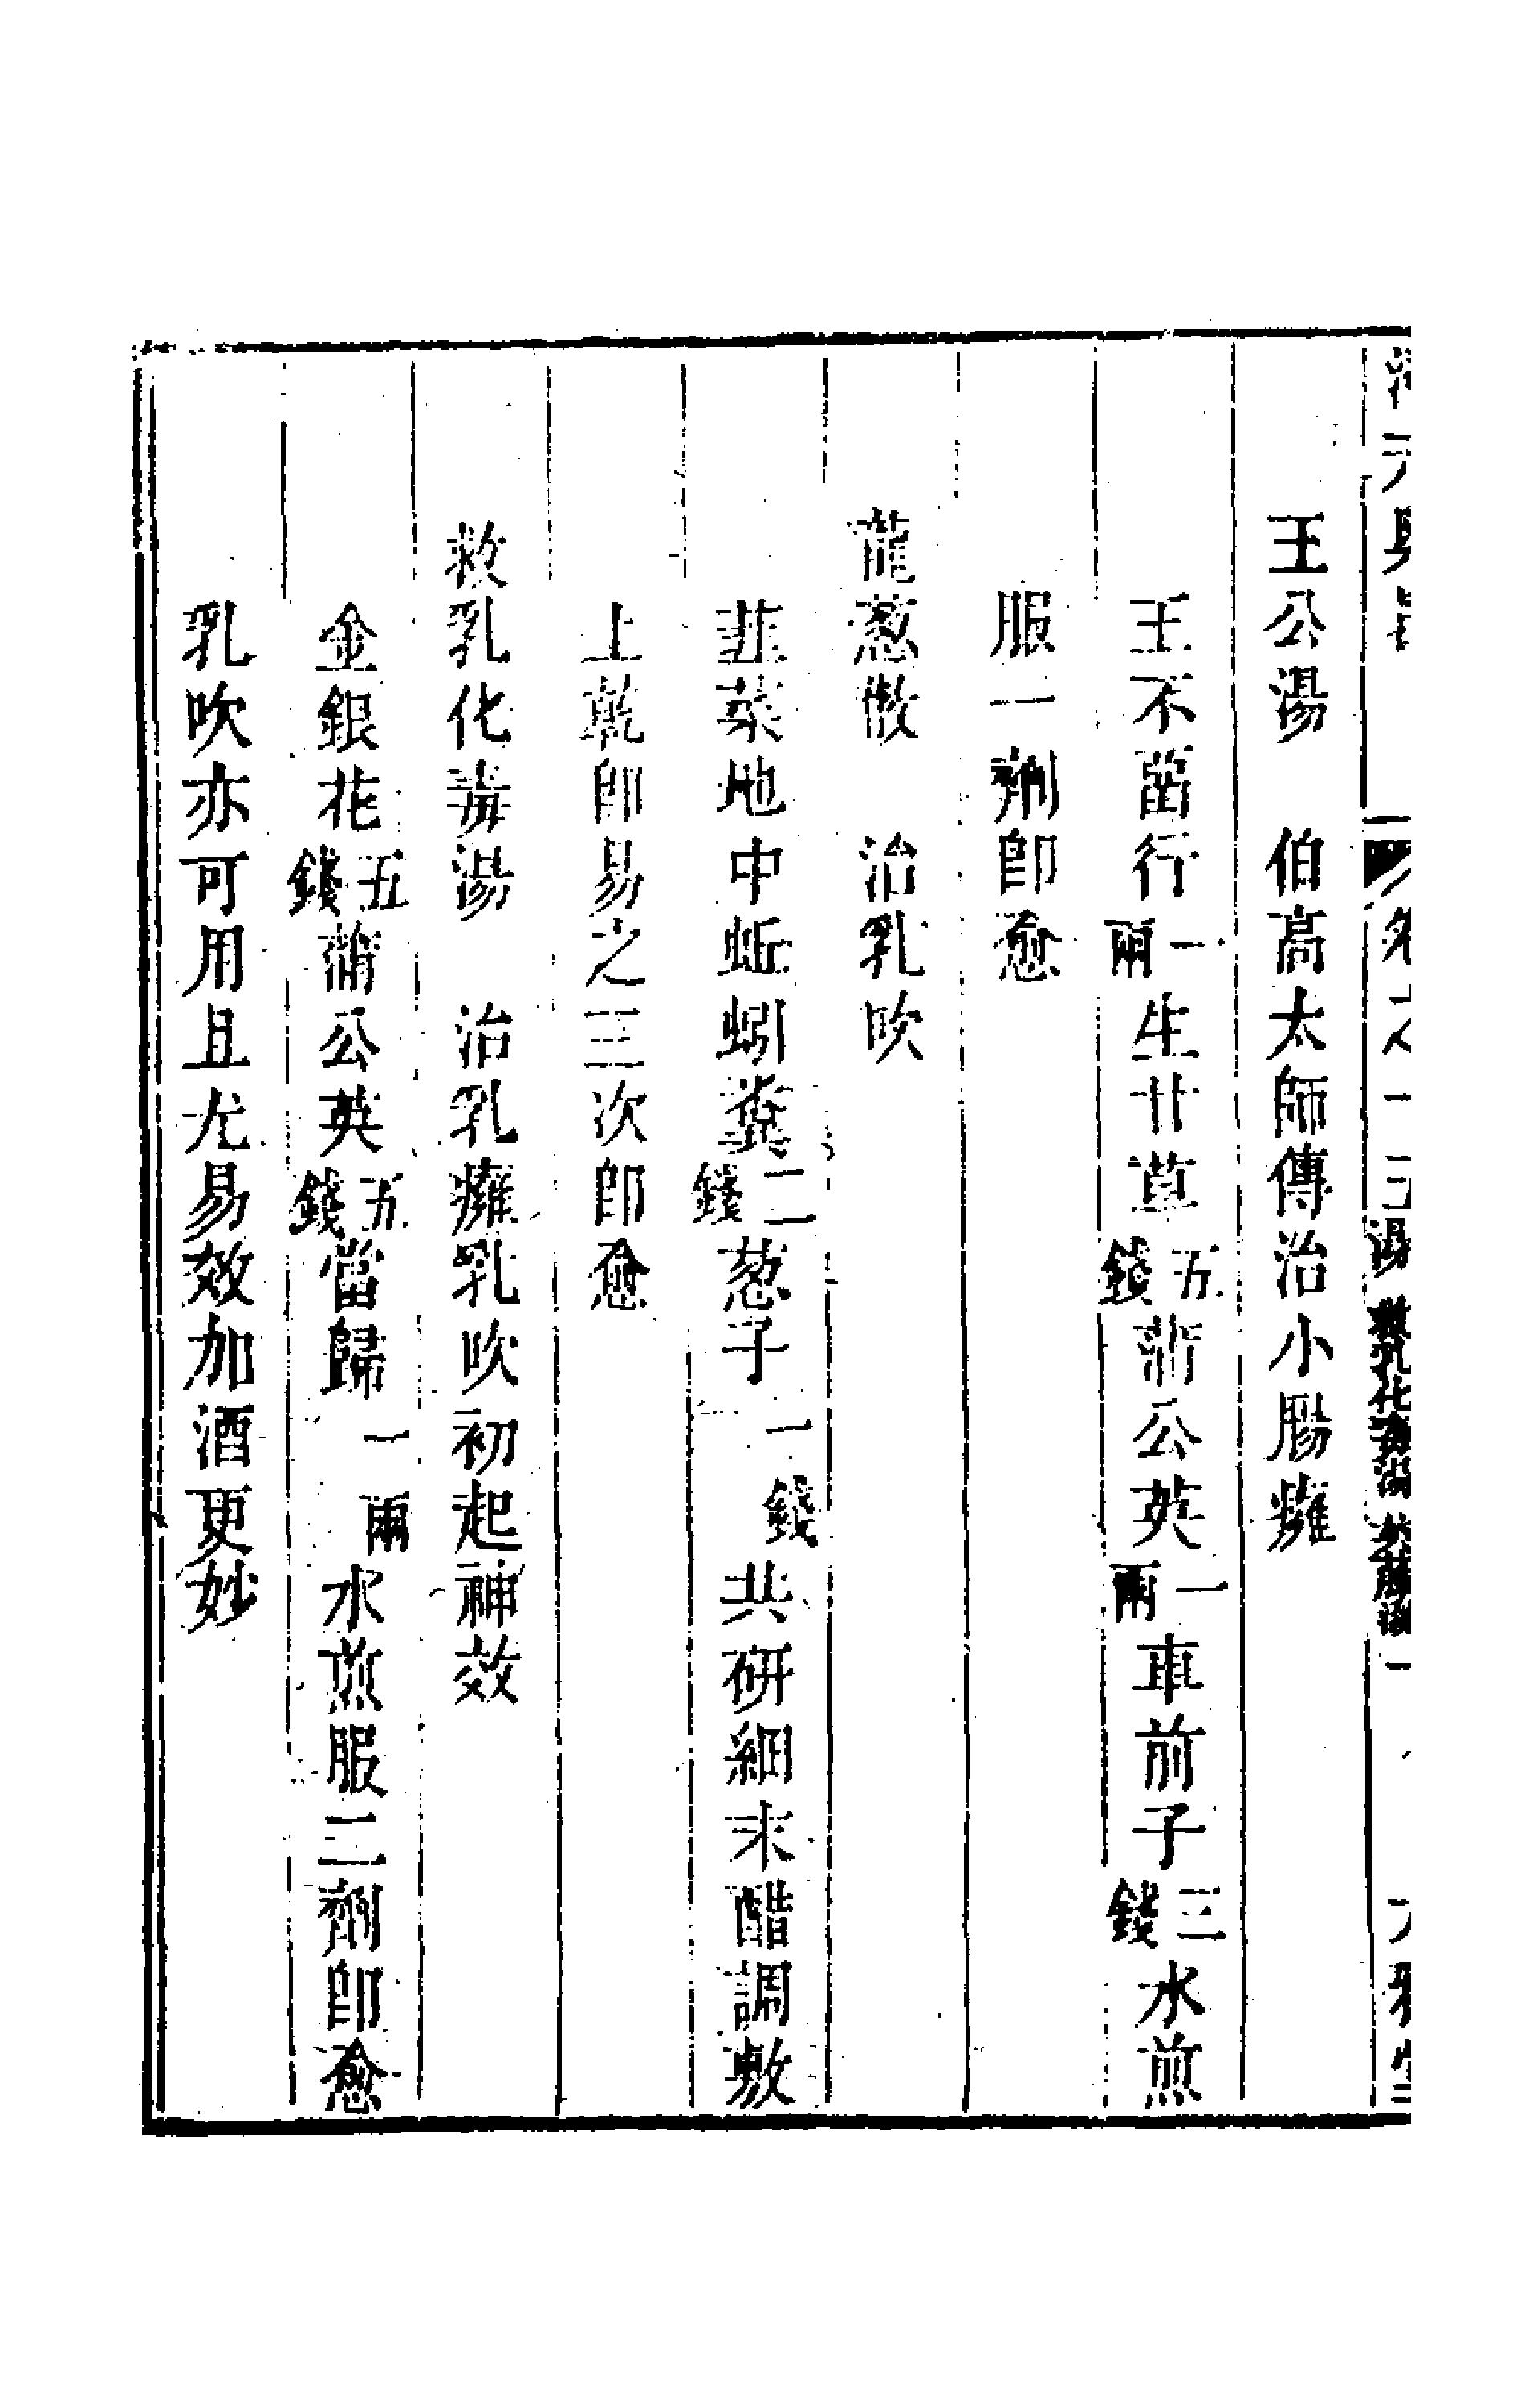 王公湯　伯高太師傳治小腸癰
王不畱行一兩生甘草五錢蒲公英一兩車前子三錢水煎
服一劑即愈
蘢葱散　治乳吹
韮菜地中蚯蚓糞二錢葱子一錢共研細末醋調敷
上乾即易之三次即愈
救乳化毒湯　治乳癰乳吹初起神效
金銀花五錢蒲公英五錢當歸一兩水煎服二劑即愈
乳吹亦可用且尤易效加酒更妙